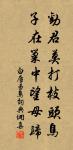 勸君莫打枝頭鳥
子在巢中望母歸
白居易鳥詩典漁書